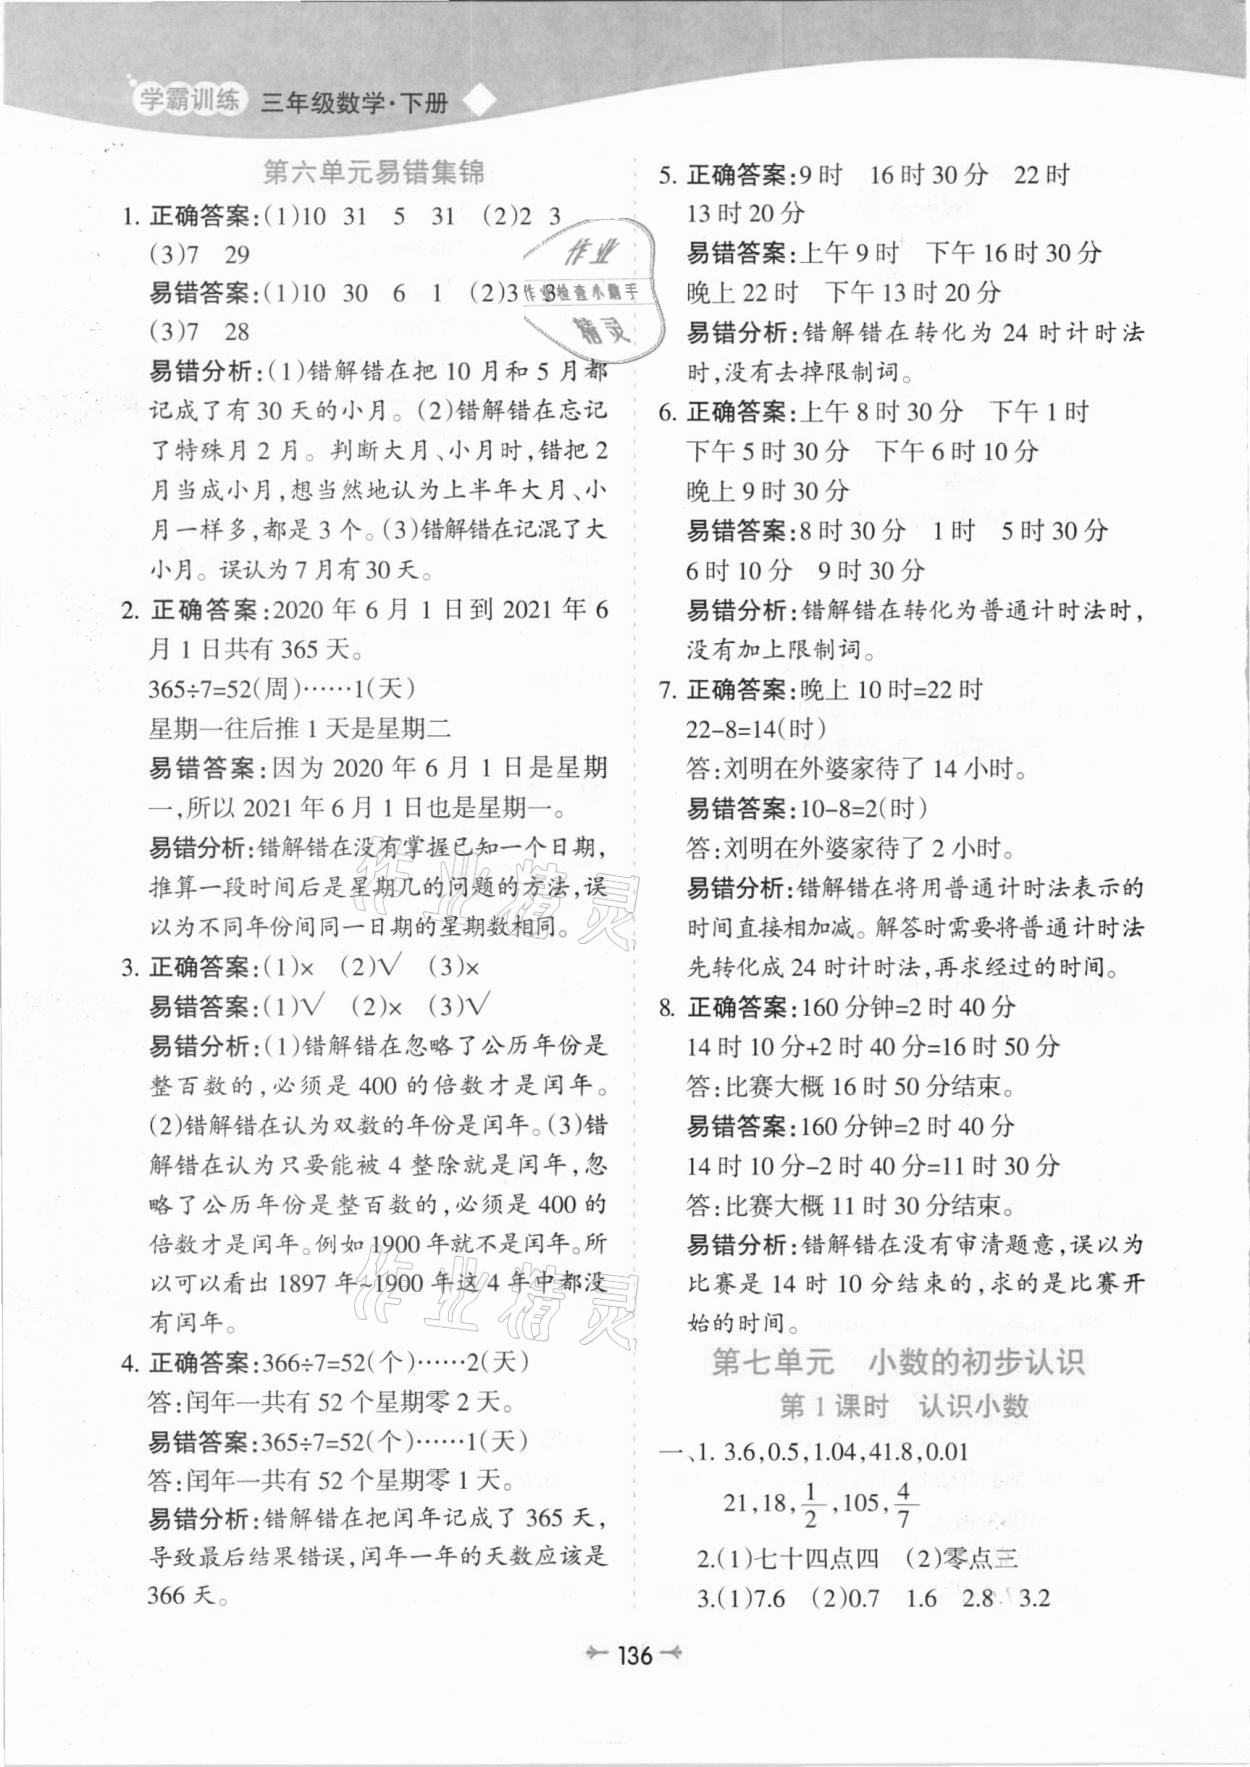 学霸训练 三年级数学·下册
第六单元易错集锦
1. 正确答案:(1)10 31 5 31 (2)2 3
(3)7 29
易错答案:(1)10 30 6 1 (2)3 3
(3)7 28
易错分析:(1)错解错在把 10 月和 5 月都
记成了有 30 天的小月。(2)错解错在忘记
了特殊月 2 月。判断大月、小月时,错把 2
月当成小月,想当然地认为上半年大月、小
月一样多,都是 3 个。(3)错解错在记混了大
小月。误认为 7 月有 30 天。
2. 正确答案:2020 年 6 月 1 日到 2021 年 6
月 1 日共有 365 天。
365÷7=52(周)……1(天)
星期一往后推 1 天是星期二
易错答案:因为 2020 年 6 月 1 日是星期
一,所以 2021 年 6 月 1 日也是星期一。
易错分析:错解错在没有掌握已知一个日期,
推算一段时间后是星期几的问题的方法,误
以为不同年份间同一日期的星期数相同。
3. 正确答案:(1)× (2)√ (3)×
易错答案:(1)√ (2)× (3)√
易错分析:(1)错解错在忽略了公历年份是
整百数的,必须是 400 的倍数才是闰年。
(2)错解错在认为双数的年份是闰年。(3)错
解错在认为只要能被 4 整除就是闰年,忽
略了公历年份是整百数的,必须是 400 的
倍数才是闰年。例如 1900 年就不是闰年。所
以可以看出 1897 年~1900 年这 4 年中都没
有闰年。
4. 正确答案:366÷7=52(个)……2(天)
答:闰年一共有 52 个星期零 2 天。
易错答案:365÷7=52(个)……1(天)
答:闰年一共有 52 个星期零 1 天。
易错分析:错解错在把闰年记成了 365 天,
导致最后结果错误,闰年一年的天数应该是
366 天。
5. 正确答案:9 时 16 时 30 分 22 时
13 时 20 分
易错答案:上午 9 时 下午 16 时 30 分
晚上 22 时 下午 13 时 20 分
易错分析:错解错在转化为 24 时计时法
时,没有去掉限制词。
6. 正确答案:上午 8 时 30 分 下午 1 时
下午 5 时 30 分 下午 6 时 10 分
晚上 9 时 30 分
易错答案:8 时 30 分 1 时 5 时 30 分
6 时 10 分 9 时 30 分
易错分析:错解错在转化为普通计时法时,
没有加上限制词。
7. 正确答案:晚上 10 时=22 时
22-8=14(时)
答:刘明在外婆家待了 14 小时。
易错答案:10-8=2(时)
答:刘明在外婆家待了 2 小时。
易错分析:错解错在将用普通计时法表示的
时间直接相加减。解答时需要将普通计时法
先转化成 24 时计时法,再求经过的时间。
8. 正确答案:160 分钟=2 时 40 分
14 时 10 分+2 时 40 分=16 时 50 分
答:比赛大概 16 时 50 分结束。
易错答案:160 分钟=2 时 40 分
14 时 10 分-2 时 40 分=11 时 30 分
答:比赛大概 11 时 30 分结束。
易错分析:错解错在没有审清题意,误以为
比赛是 14 时 10 分结束的,求的是比赛开
始的时间。
第七单元 小数的初步认识
第 1 课时 认识小数
一、1. 3.6,0.5,1.04,41.8,0.01
21,18,1/2,105,4/7
2.(1)七十四点四 (2)零点三
3.(1)7.6 (2)0.7 1.6 2.8 3.2
136
作业
作业检查小助手
精灵
作业精灵
作业精灵